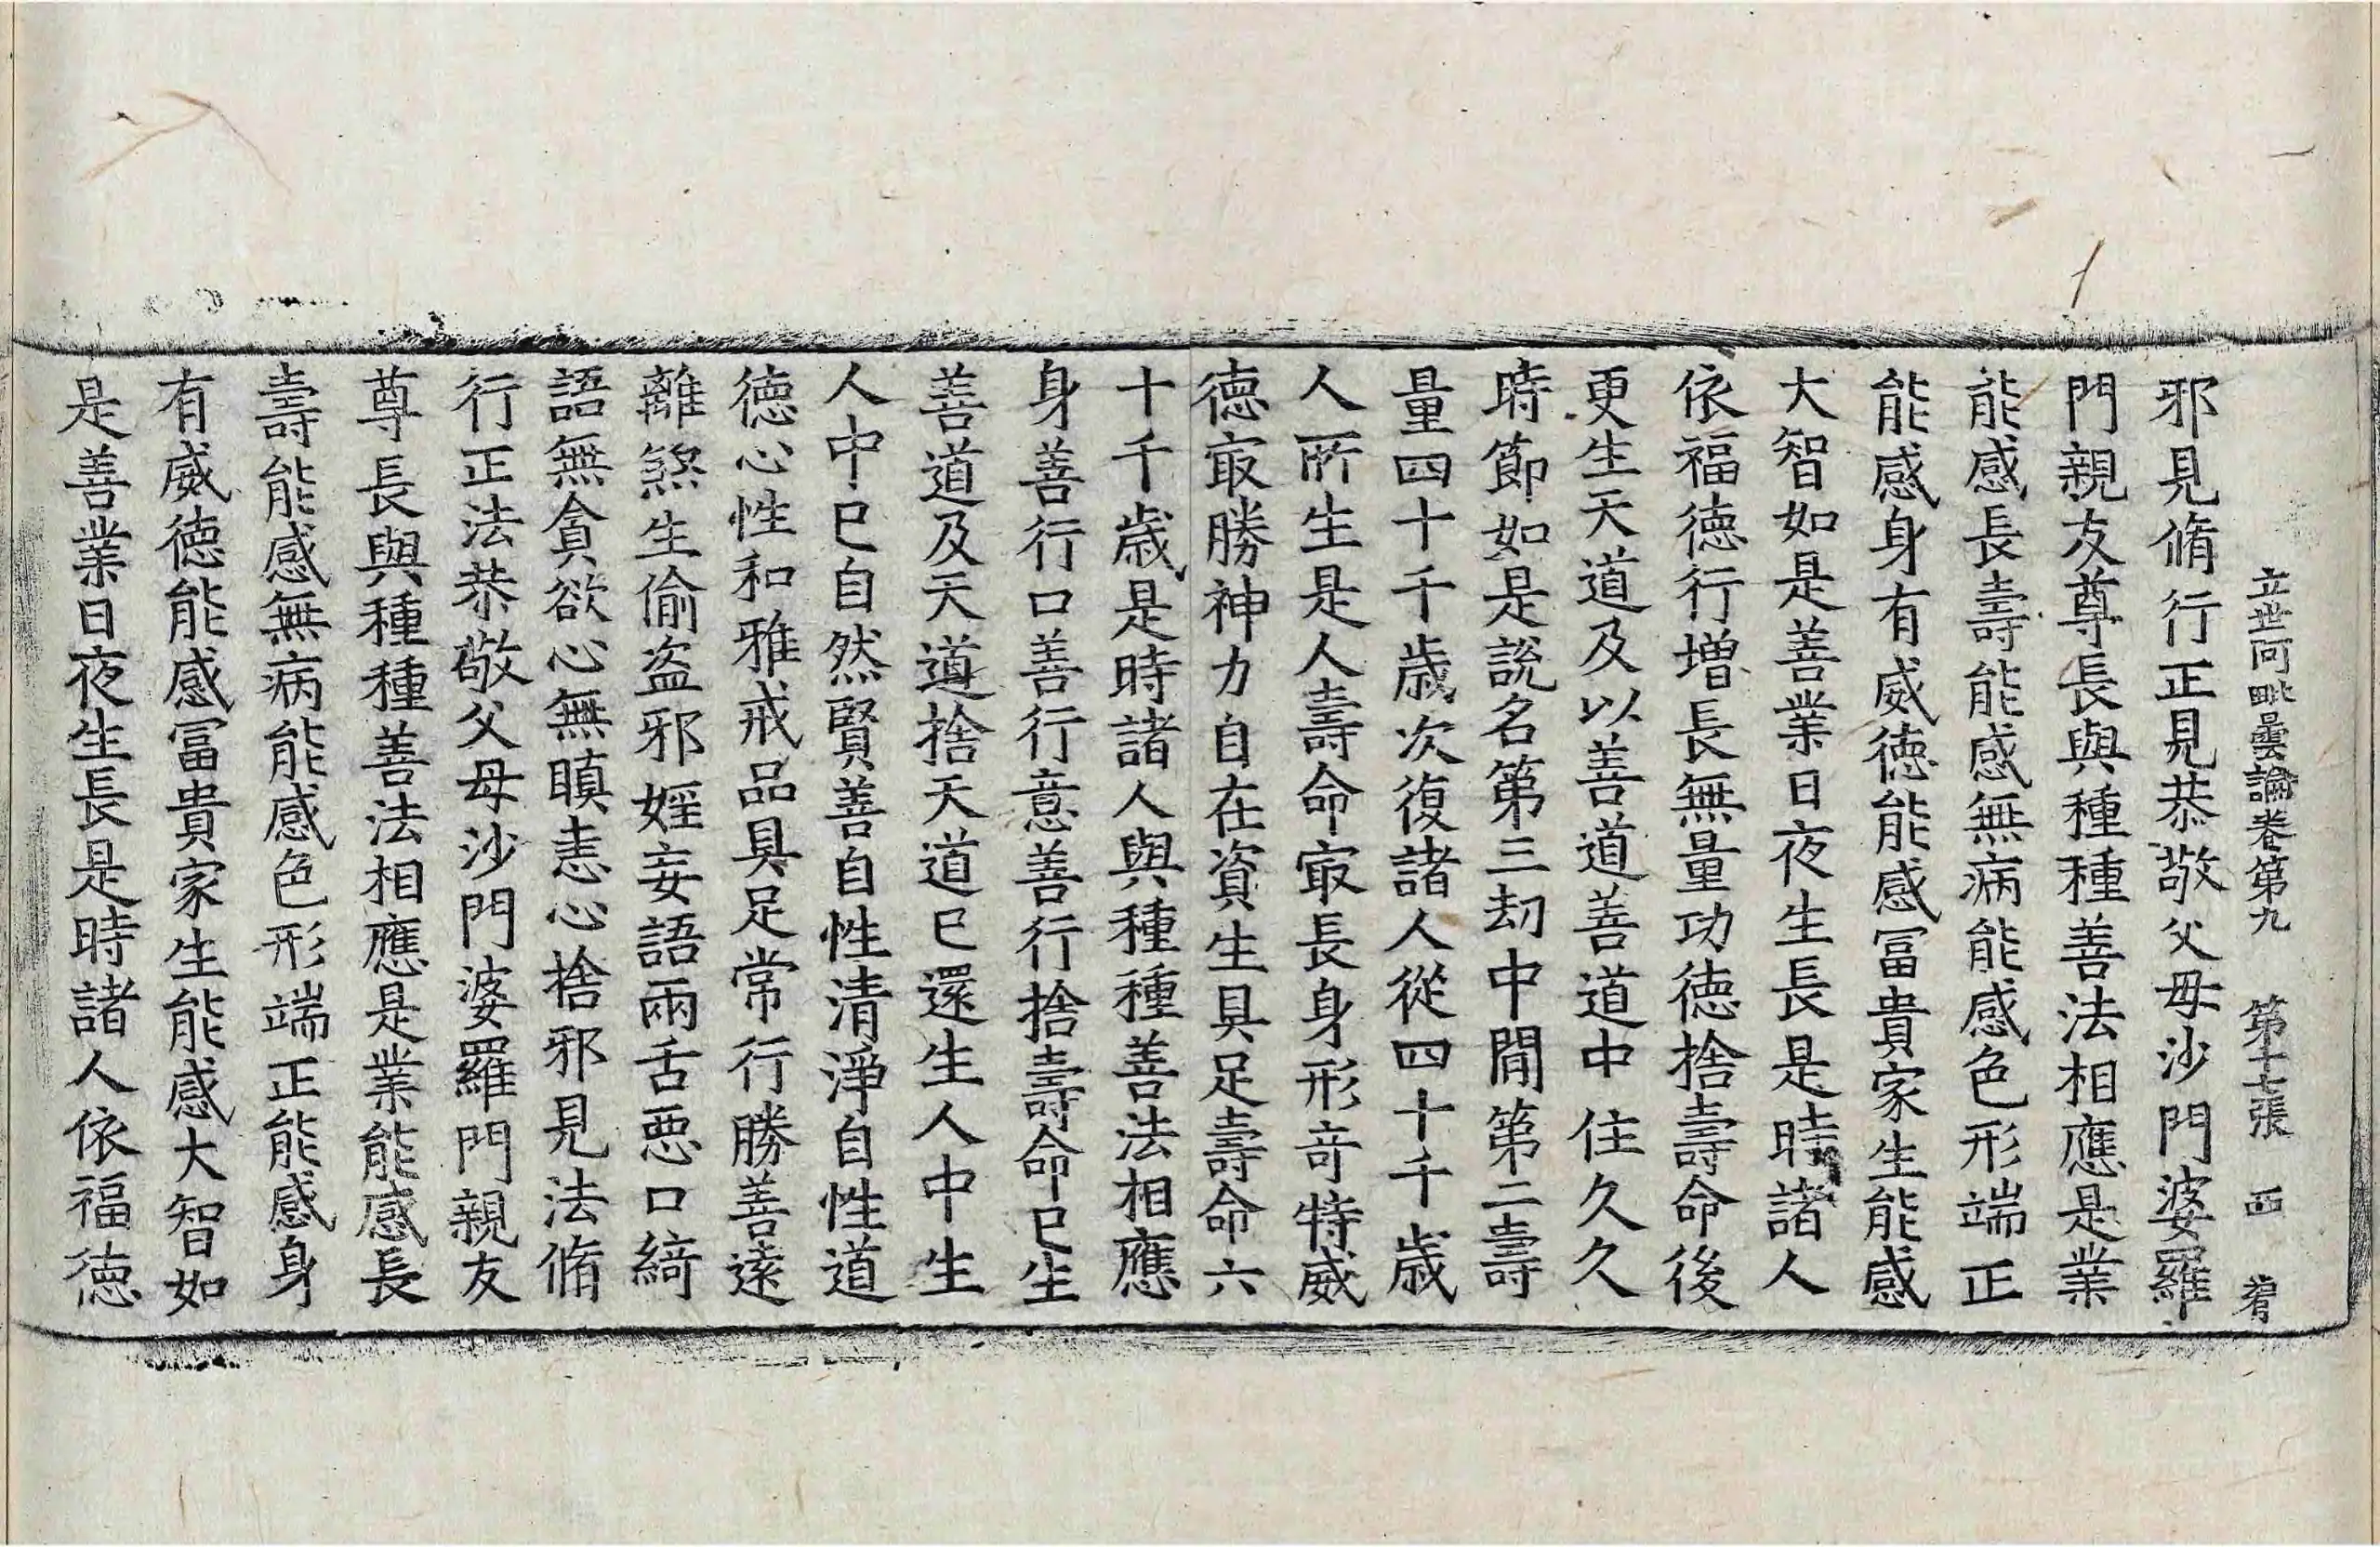 立世阿毗曇論卷第九　第十七張　西
邪見脩行正見恭敬父母沙門婆羅
門親友尊長與種種善法相應是業
能感長壽能感無病能感色形端正
能感身有威徳能感冨貴家生能感
大智如是善業日夜生長是時諸人
依福徳行增長無量功徳捨壽命後
更生天道及以善道善道中住久久
時節如是說名第三劫中間第二壽
量四十千歳次復諸人從四十千歳
人所生是人壽命㝡長身形竒特威
徳㝡勝神力自在資生具足壽命六
十千歳是時諸人與種種善法相應
身善行口善行意善行捨壽命已生
善道及天道捨天道已還生人中生
人中已自然賢善自性清淨自性道
徳心性和雅戒品具足常行勝善遠
離煞生偷盗邪婬妄語兩舌惡口綺
語無貪欲心無瞋恚心捨邪見法脩
行正法恭敬父母沙門婆羅門親友
尊長與種種善法相應是業能感長
壽能感無病能感色形端正能感身
有威徳能感冨貴家生能感大智如
是善業日夜生長是時諸人依福徳